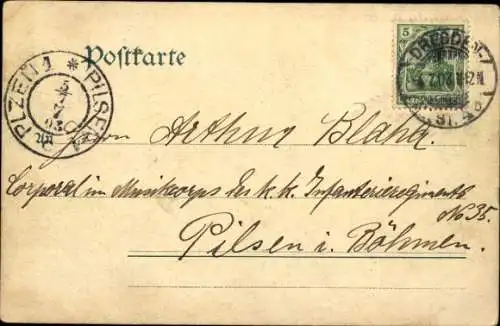 Postkarte
5
DRESDEN-7
PLZEŇ 1 * PILSEN
Herrn Arthur Blaha
Corporal im Musikcorps des k. k. Infanterieregiments
No 35.
Pilsen i. Böhmen.